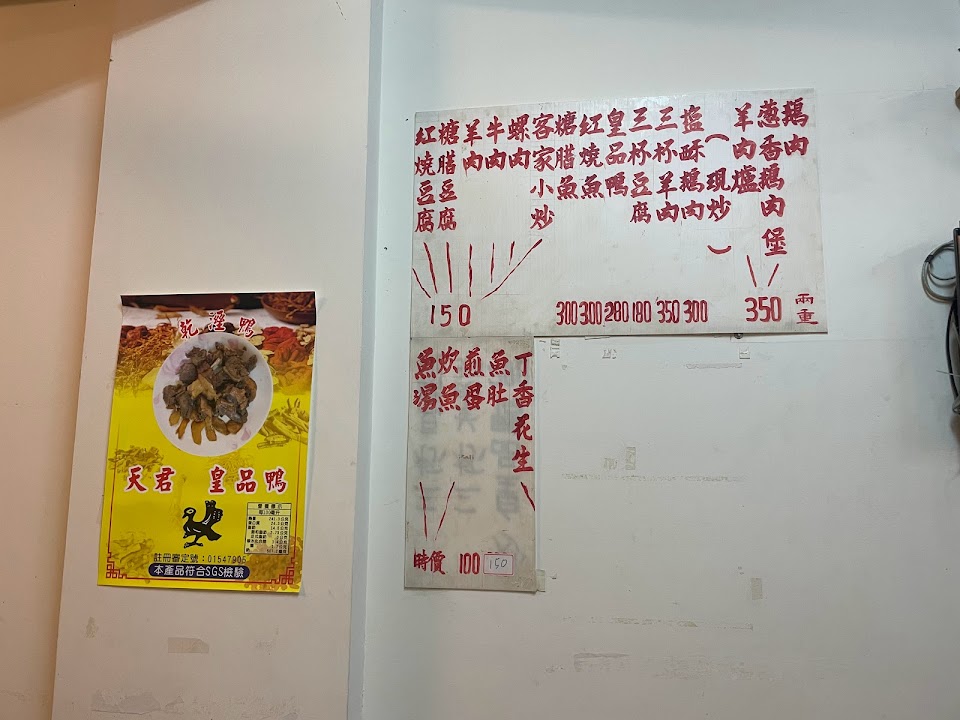 鵝肉
葱香鵝肉堡
羊肉爐
350
兩重
（現炒）
塩酥鵝肉
三杯羊肉
三杯豆腐
皇品鴨
紅燒魚
糖腊魚
客家小炒
螺肉
牛肉
羊肉
糖膳豆腐
紅燒豆腐
150
300 300 280 180 350 300
丁香花生
魚肚
煎蛋
炊魚
魚湯
時價 100 150
乾溼鴨
天君 皇品鴨
營養標示
註冊審定號：01547905
本產品符合SGS檢驗